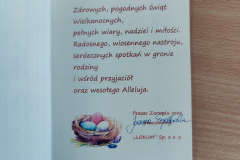 Zdrowych, pogodnych świąt
Wielkanocnych,
pełnych wiary, nadziei i miłości.
Radosnego, wiosennego nastroju,
serdecznych spotkań w gronie
rodziny
i wśród przyjaciół
oraz wesołego Alleluja.
Prezes Zarządu
"LOKUM" Sp. z o. o.